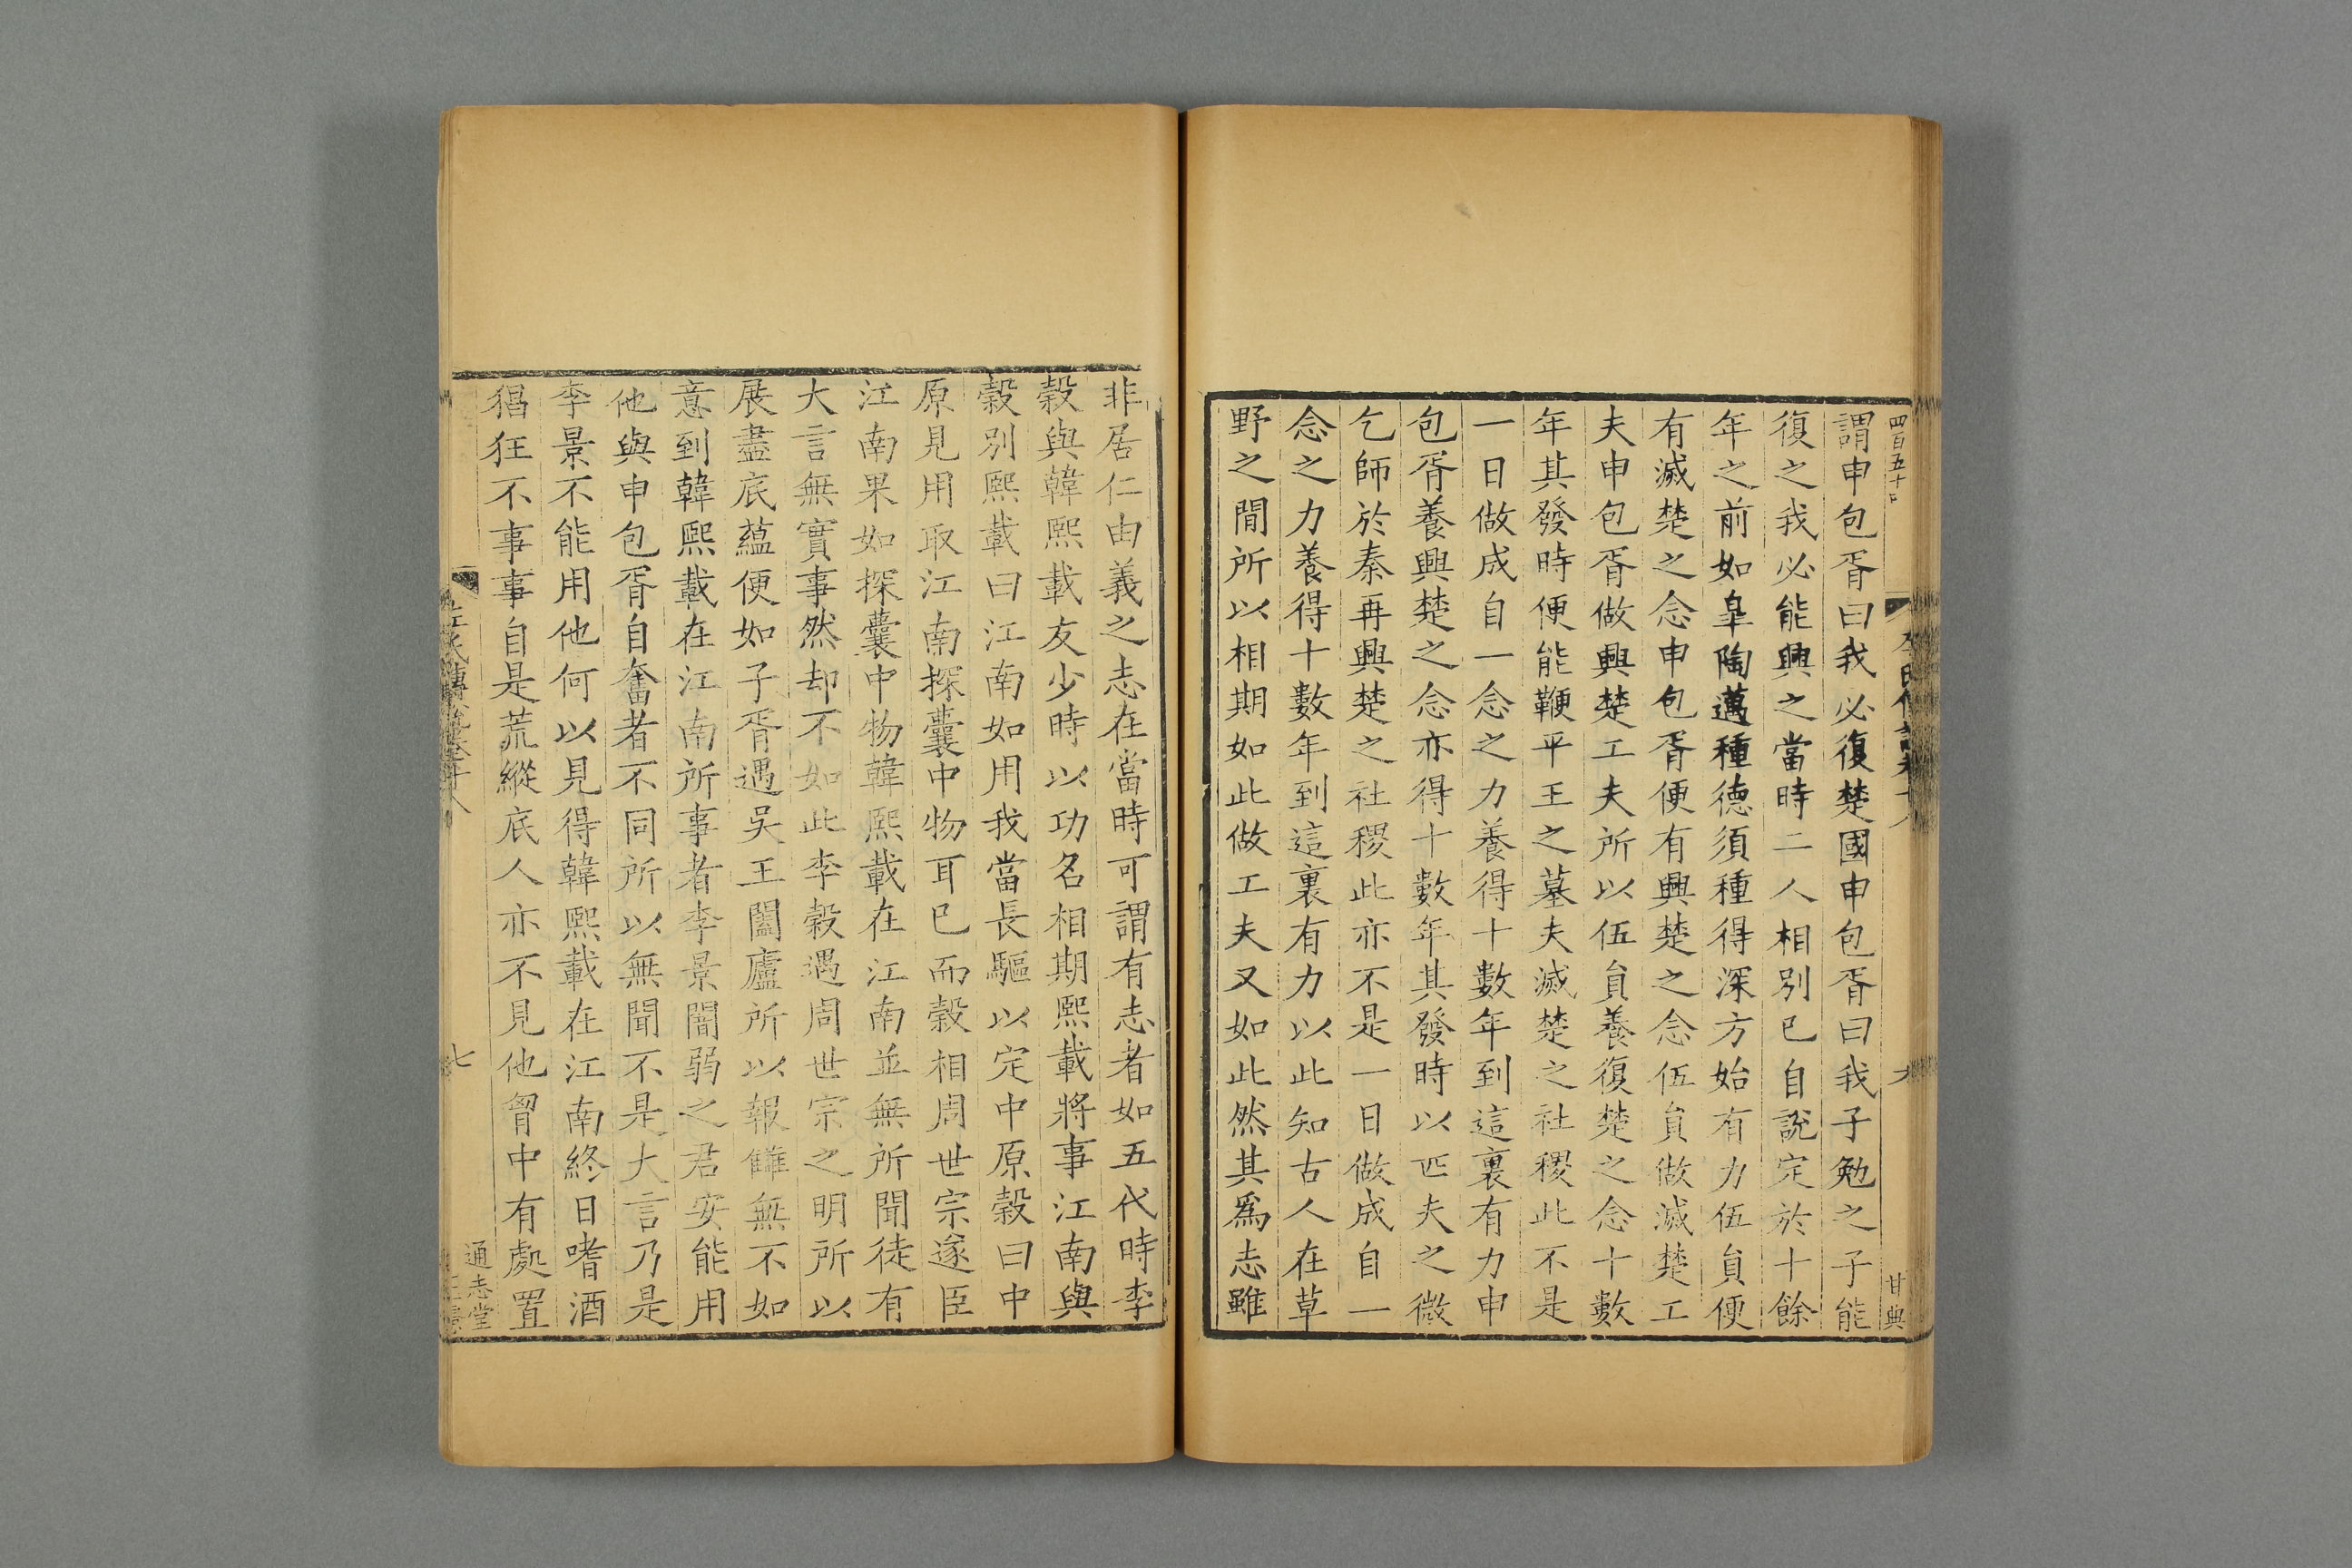 四百五十口
甘典
謂申包胥曰我必復楚國申包胥曰我子勉之子能
復之我必能興之當時二人相別已自說定於十餘
年之前如皐陶邁種德須種得深方始有力伍貟便
有滅楚之念申包胥便有興楚之念伍貟做滅楚工
夫申包胥做興楚工夫所以伍貟養復楚之念十數
年其發時便能鞭平王之墓夫滅楚之社稷此不是
一日做成自一念之力養得十數年到這裏有力申
包胥養興楚之念亦得十數年其發時以匹夫之微
乞師於秦再興楚之社稷此亦不是一日做成自一
念之力養得十數年到這裏有力以此知古人在草
野之間所以相期如此做工夫又如此然其爲志雖
非居仁由義之志在當時可謂有志者如五代時李
穀與韓熙載友少時以功名相期熙載將事江南與
穀別熙載曰江南如用我當長驅以定中原穀曰中
原見用取江南探囊中物耳已而穀相周世宗遂臣
江南果如探囊中物韓熙載在江南並無所聞徒有
大言無實事然却不如此李穀遇周世宗之明所以
展盡底蘊便如子胥遇吳王闔廬所以報讎無不如
意到韓熙載在江南所事者李景闇弱之君安能用
他與申包胥自奮者不同所以無聞不是大言乃是
李景不能用他何以見得韓熙載在江南終日嗜酒
猖狂不事事自是荒縱底人亦不見他胷中有處置
七
通志堂